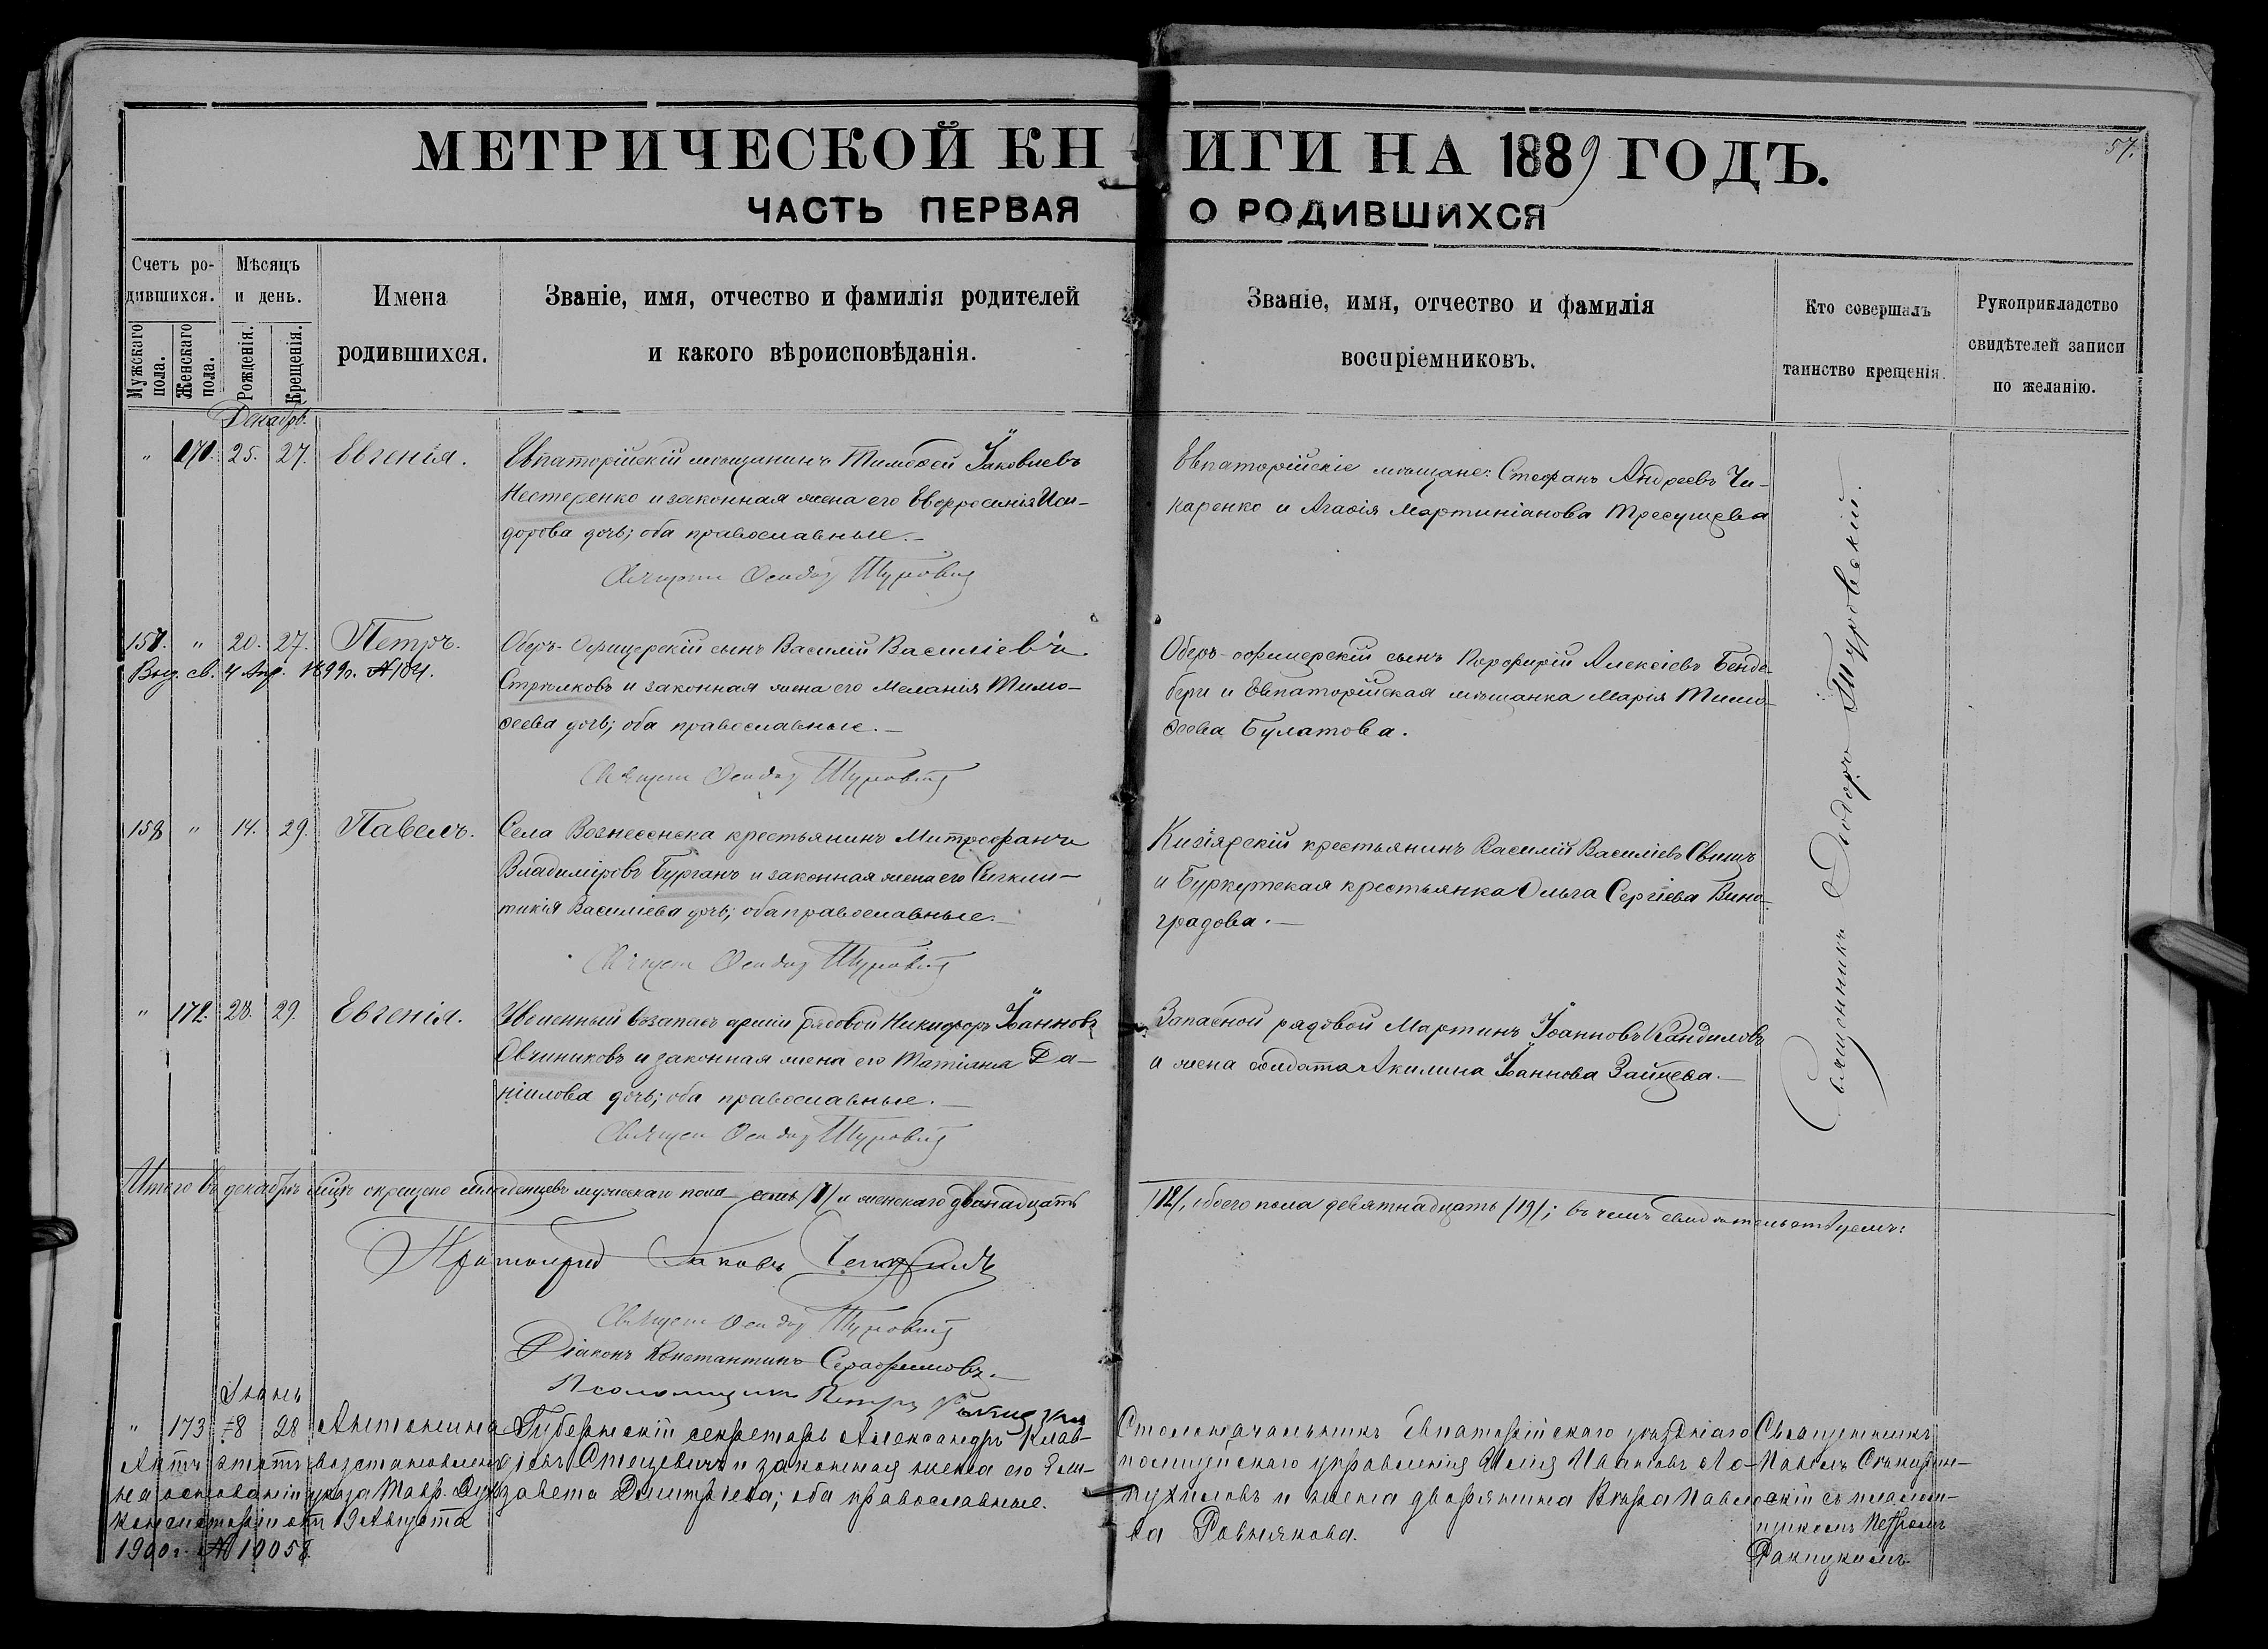 МЕТРИЧЕСКОЙ КНИГИ НА 1889 ГОДЪ.
57.
ЧАСТЬ ПЕРВАЯ О РОДИВШИХСЯ
Счетъ ро-
дившихся.
Мужскаго пола.
Женскаго пола.
Мѣсяцъ
и день.
Рожденія.
Крещенія.
Имена
родившихся.
Званіе, имя, отчество и фамилія родителей
и какого вѣроисповѣданія.
Званіе, имя, отчество и фамилія
воспріемниковъ.
Кто совершалъ
таинство крещенія.
Рукоприкладство
свидѣтелей записи
по желанію.
Декабрь.
" 171. 25. 27. Евгенія.
Евпаторійскій мѣщанинъ Тимоѳей Іаковлевъ
Нестеренко и законная жена его Евфросинія Иси-
дорова дочь; оба православные.–
Священ Ѳеодор Туровскій
Евпаторійскіе мѣщане: Стефанъ Андреевъ Чи-
каренко и Агаѳія Мартиніанова
157. " 20. 27. Петръ.
Выд. св. 4 Апр. 1899г. №104.
Оберъ-Офицерскій сынъ Василій Василіевъ
Стрѣлковъ и законная жена его Меланія Тимо-
ѳеева дочь; оба православные.–
Священ Ѳеодор Туровскій
Оберъ-офицерскій сынъ Порфирій Алексіевъ Бенде-
бери и Евпаторійская мѣщанка Марія Тимо-
ѳеева Булатова.
158 " 14. 29. Павелъ.
Села Вознесенска крестьянинъ Митрофанъ
Владиміровъ Бурганъ и законная жена его Сигкли-
тикія Василіева дочь; оба православные.–
Священ Ѳеодор Туровскій
Кизіярскій крестьянинъ Василій Василіевъ Свищъ
и Буркутская крестьянка Ольга Сергіева Вино-
градова.–
" 172. 28. 29. Евгенія.
Уволенный въ запасъ арміи рядовой Никифоръ Іоанновъ
Овчиниковъ и законная жена его Татіана Да-
ніилова дочь; оба православные.–
Священ Ѳеодор Туровскій
Запасной рядовой Мартинъ Іоанновъ Кандиловъ
и жена солдата Акилина Іоаннова Зайцева.–
Священникъ Ѳеодоръ Туровскій.
Итого въ декабрѣ мѣцѣ окрещено младенцевъ мужескаго пола семь /7/ и женскаго двѣнадцать
/12/, обоего пола девятнадцать /19/; въ чемъ свидѣтельствуемъ:
Протоіерей Іаковъ
Священ Ѳеодор Туровскій
Діаконъ Константинъ Серафимовъ.–
Псаломщикъ Петръ
Іюнь
" 173 8 28 Антонина
Актъ этотъ возстановленъ
на основаніи указа Тавр. Дух.
Консисторіи отъ 19 Августа
1900г. № 10058.
Губернскій секретарь Александръ Клав-
діевъ Стецевичъ и законная жена его Ели-
завета Димитріева; оба православные.
Столоначальникъ Евпаторійскаго уѣзднаго
полицейскаго управленія Илія Ивановъ Ло-
пухиловъ и жена дворянина Вѣра Павло-
ва Ровнякова.
Священникъ
Павелъ
скій съ псалом-
щикомъ Петромъ
Ракицкимъ.